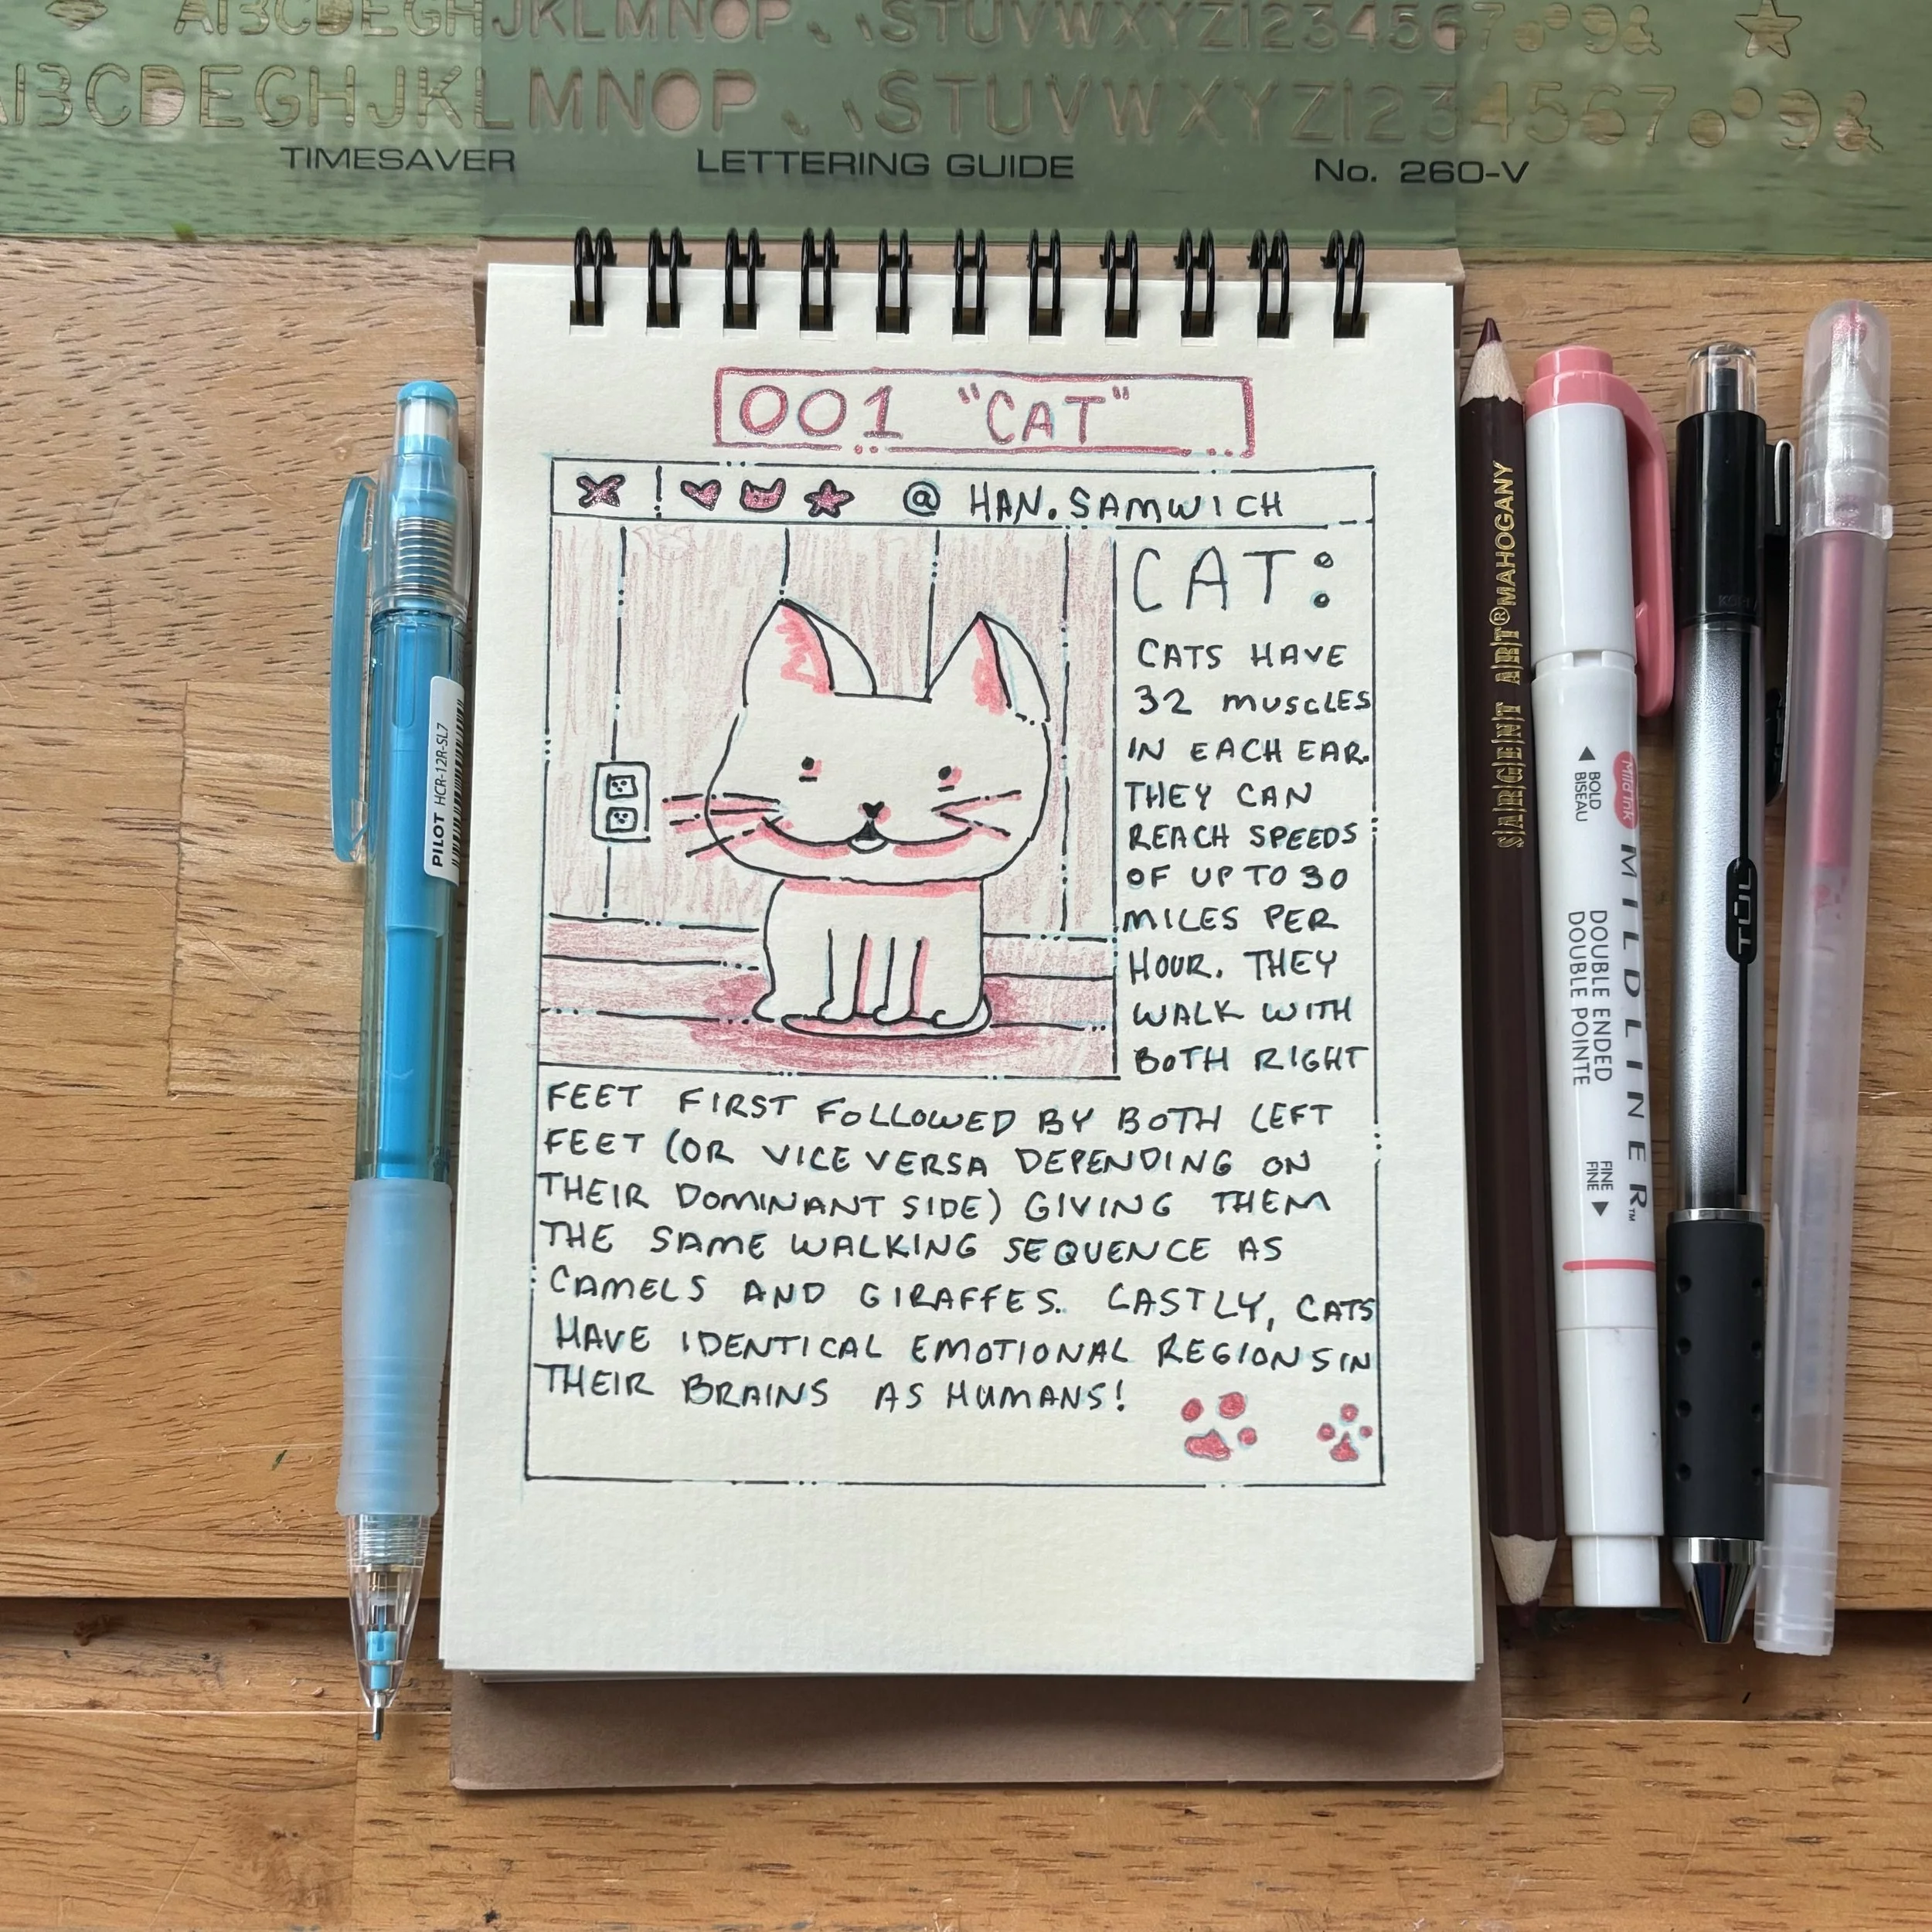 ABCDEGHJKLMNOP STUVWXYZ1234567 9&
ABCDEGHJKLMNOP STUVWXYZ1234567 9&
TIMESAVER LETTERING GUIDE No. 260-V
001 "CAT"
@ HAN.SAMWICH
CAT:
CATS HAVE
32 MUSCLES
IN EACH EAR.
THEY CAN
REACH SPEEDS
OF UP TO 30
MILES PER
HOUR. THEY
WALK WITH
BOTH RIGHT
FEET FIRST FOLLOWED BY BOTH LEFT
FEET (OR VICE VERSA DEPENDING ON
THEIR DOMINANT SIDE) GIVING THEM
THE SAME WALKING SEQUENCE AS
CAMELS AND GIRAFFES. LASTLY, CATS
HAVE IDENTICAL EMOTIONAL REGIONS IN
THEIR BRAINS AS HUMANS!
PILOT HCR-12R-SL7
SARGENT ART® MAHOGANY
Mild ink
MILDLINER™
BOLD
BISEAU
DOUBLE ENDED
DOUBLE POINTE
FINE
FINE
TUL